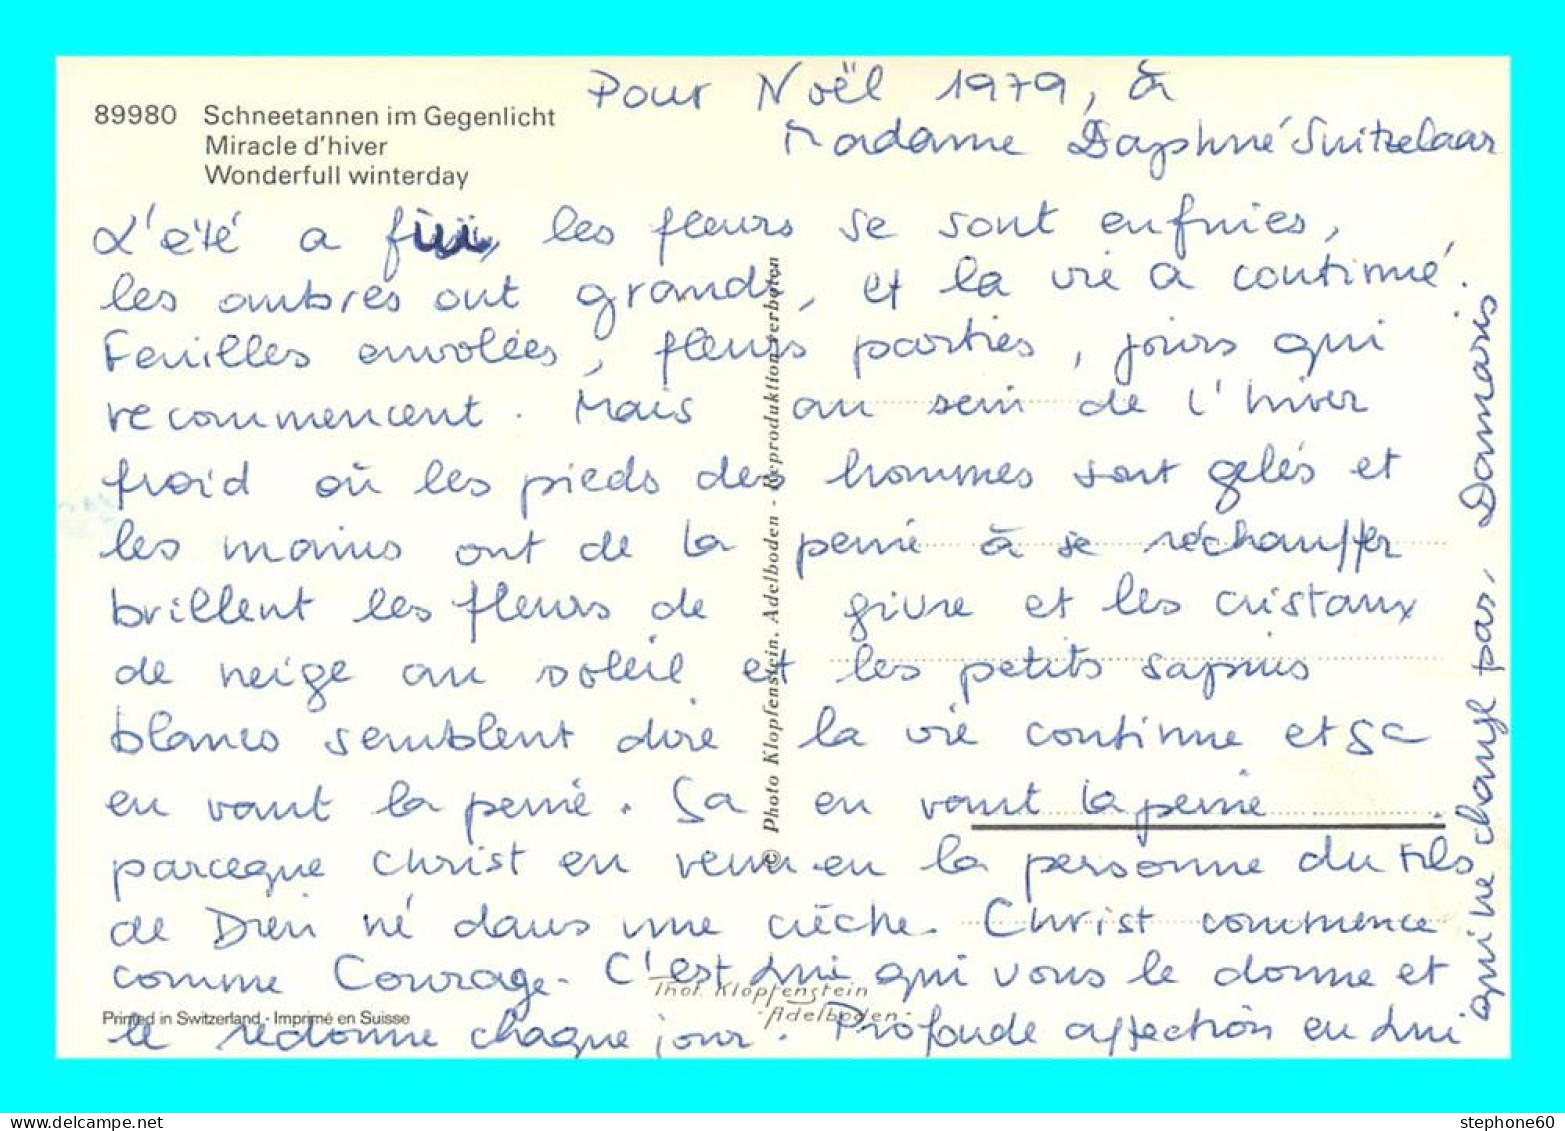 Pour Noël 1979, à
Madame Daphné Suitzelaar
89980 Schneetannen im Gegenlicht
Miracle d'hiver
Wonderfull winterday
L'été a fui, les fleurs se sont enfuies,
les ombres ont grandi, et la vie a continué.
Feuilles envolées, fleurs parties, jours qui
recommencent. Mais au sein de l'hiver
froid où les pieds des hommes sont gelés et
les mains ont de la peine à se réchauffer
brillent les fleurs de givre et les cristaux
de neige au soleil et les petits sapins
blancs semblent dire la vie continue et ça
en vaut la peine. Ça en vaut la peine
parceque Christ en venu en la personne du Fils
de Dieu né dans une crèche. Christ commence
comme Courage. C'est Lui qui vous le donne et
le redonne chaque jour. Profonde affection en Lui
qui ne change pas, Damaris
© Photo Klopfenstein, Adelboden - Reproduktion verboten
Phot. Klopfenstein
- Adelboden -
Printed in Switzerland - Imprimé en Suisse
stephone60